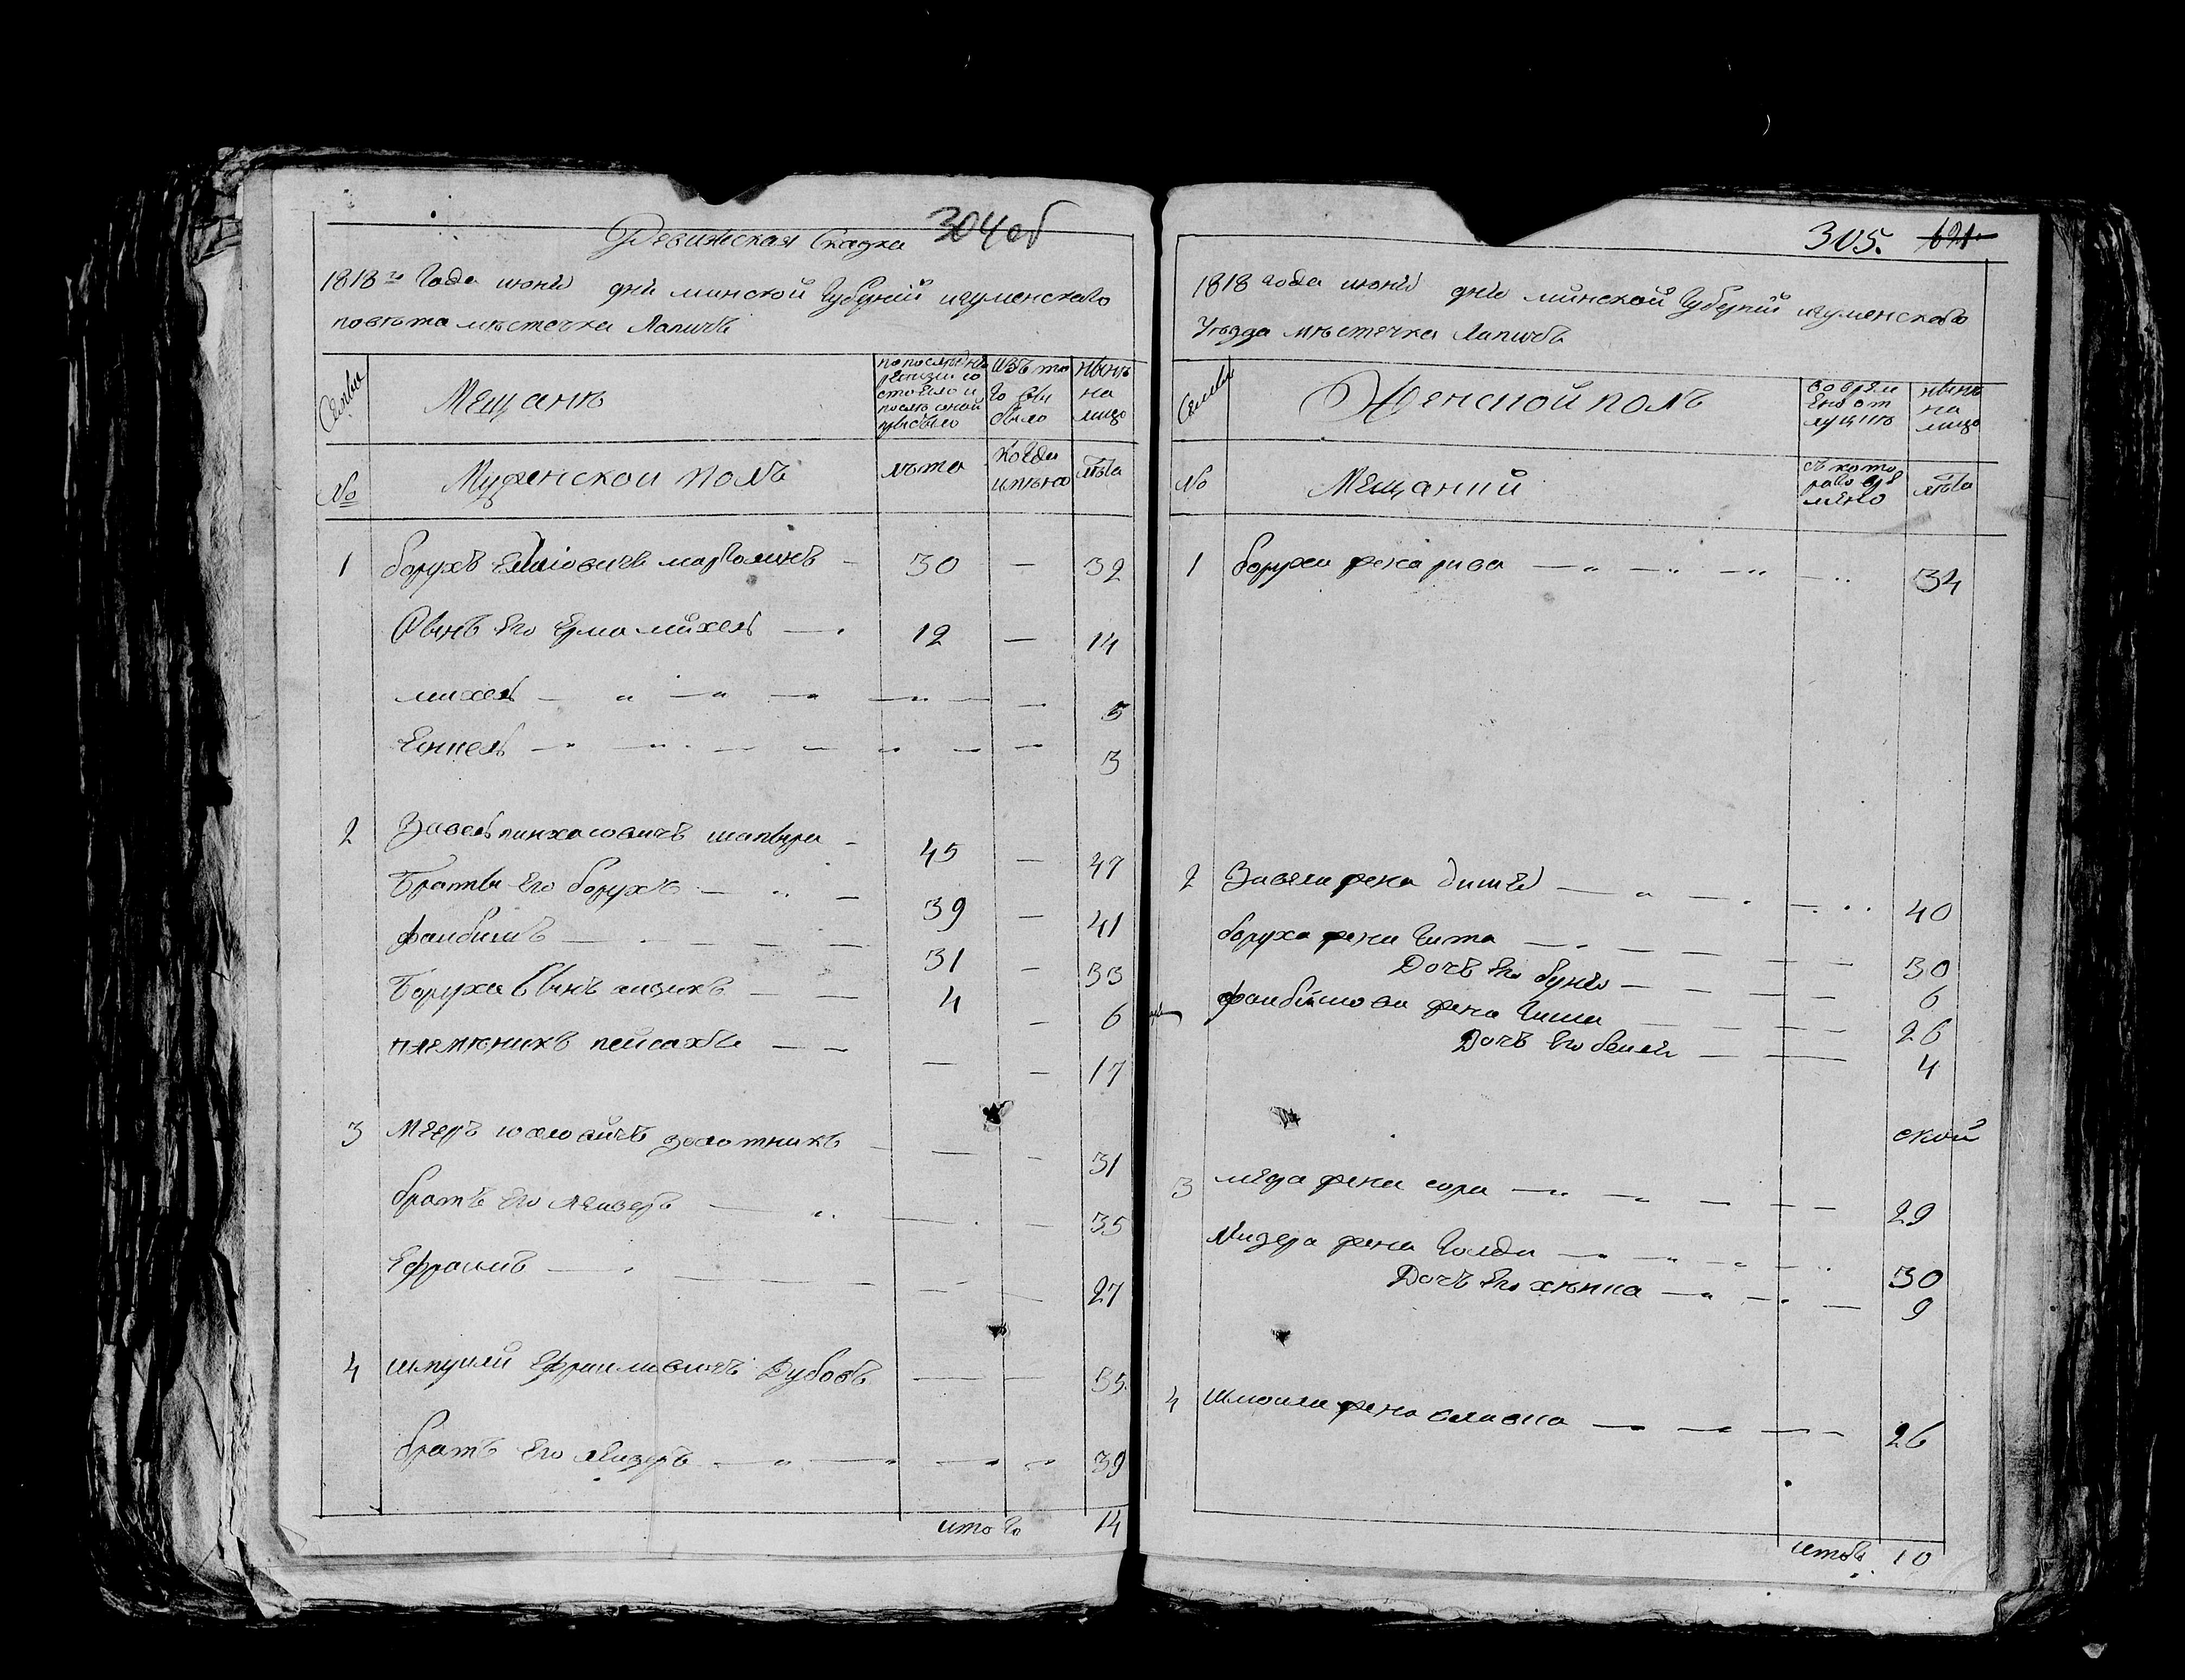 Ревижская Сказка 304 об
1818го Года июня дня минской Губерній игуменского
повета местечка Лапичъ
Семьи
Мещанъ
по последней ревизіи состояло и после оной прибыло
изъ того выбыло
ныне на лицо
№
Мужескои полъ
лета
Когда имянно
лета
1 борухъ елиіовичъ марголинъ 30 — 32
Сынъ его Ермамихель — 12 — 14
михель — 5
Ешель — 3
2 Завель пинхасовичъ шапыра 45 — 47
Браты его борухъ — 39 — 41
файбишъ — 31 — 33
Боруха Сынъ ицикъ — 4 — 6
племеникъ пейсахъ — — — 17
3 Мееръ золотникъ — — 31
братъ его лейзеръ — — — 35
Ефраимъ — — — 27
4 Ефраимовичъ Дубовъ — — 35
братъ его лейзеръ — — — 39
итого 14
305. 621
1818 года июня дня минской Губерній игуменского
Уезда местечка Лапичъ
Семьи
Женской полъ
во временной отлучке
ныне на лицо
№
Мещаній
съ которого времено
лета
1 боруха жена рива — 34
2 Завеля жена — 40
боруха жена Гита — 30
Дочъ его буня — 6
файбишова жена — 26
Дочъ его — 4
3 жена сора — 29
Лизера жена Голда — 30
Дочъ его — 9
4 Шмоила жена славка — 26
итого 10